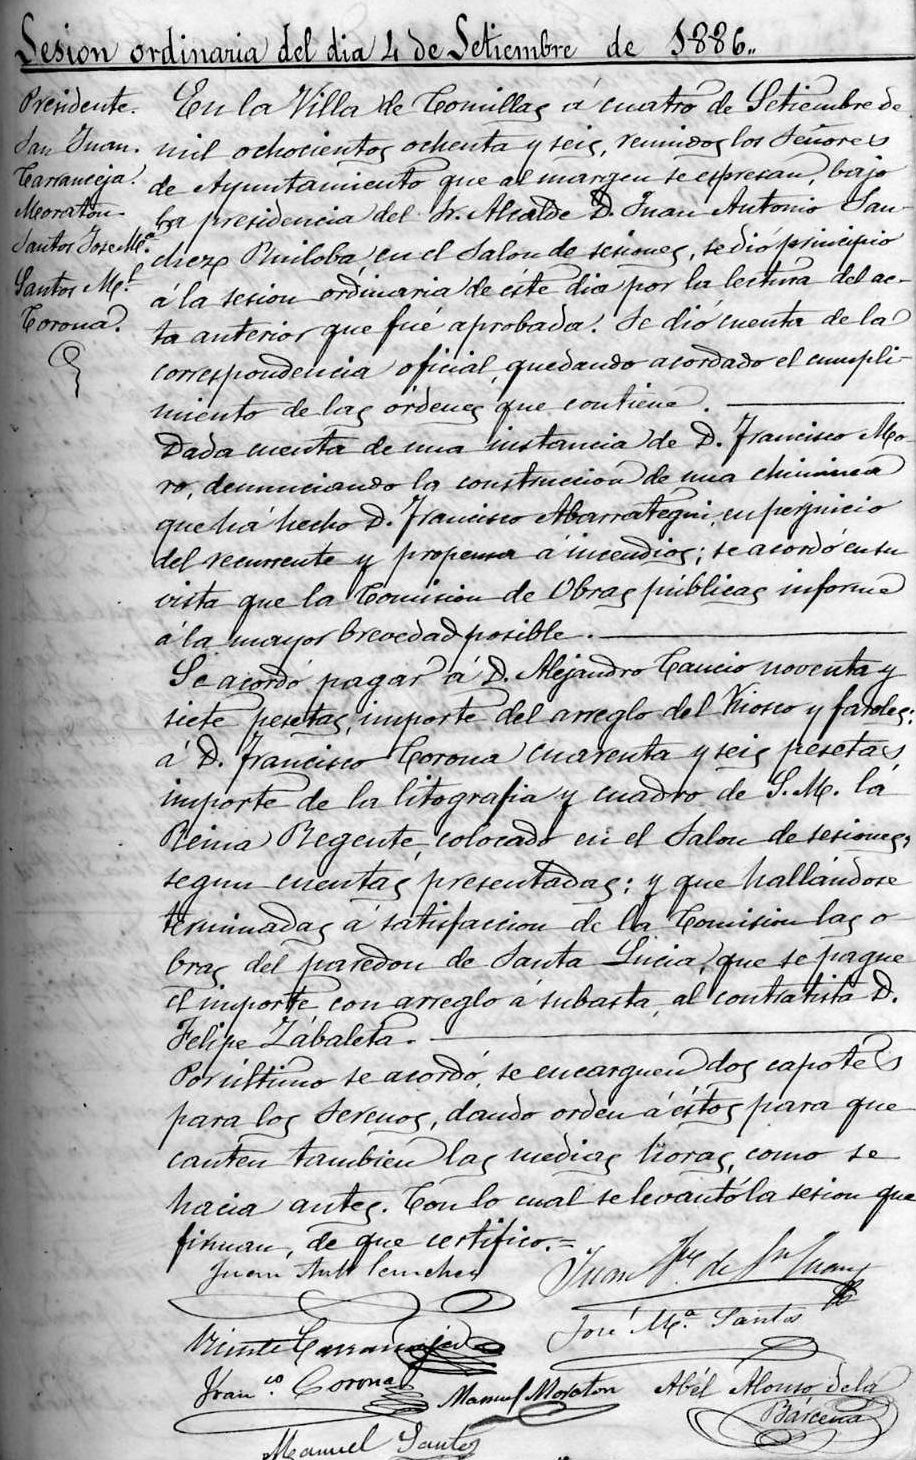 Sesion ordinaria del dia 4 de Setiembre de 1886„
Presidente.
San Juan.
Carranceja.
Moraton.
Santos Jose Mª.
Santos Ml.
Corona.
En la Villa de Comillas á cuatro de Setiembre de
mil ochocientos ochenta y seis, reunidos los Señores
de Ayuntamiento que al margen se espresan, bajo
la presidencia del Sr. Alcalde D. Juan Antonio San-
chez Ruiloba en el Salon de sesiones, se dió principio
á la sesion ordinaria de éste dia por la lectura del ac-
ta anterior que fué aprobada. Se dió cuenta de la
correspondencia oficial, quedando acordado el cumpli-
miento de las órdenes que contiene.
Dada cuenta de una instancia de D. Francisco Mo-
ro, denunciando la construccion de una chiminea
que há hecho D. Francisco Abarrategui, en perjuicio
del recurrente y propensa á incendios; se acordó en su
vista que la Comision de Obras públicas informe
á la mayor brevedad posible.
Se acordó pagar á D. Alejandro Cancio noventa y
siete pesetas, importe del arreglo del Kiosco y faroles;
á D. Francisco Corona cuarenta y seis pesetas,
importe de la litografia y cuadro de S. M. la
Reina Regente, colocado en el Salon de sesiones,
segun cuentas presentadas; y que hallándose
terminadas á satisfaccion de la Comision las o-
bras del paredon de Santa Lucia, que se pague
el importe con arreglo á subasta, al contratista D.
Felipe Zábaleta.
Por último se acordó, se encarguen dos capotes
para los Serenos, dando orden á éstos para que
canten tambien las medias horas, como se
hacia antes. Con lo cual se levantó la sesion que
firman, de que certifico.=
Juan Antº Sanchez
Juan de Sn Juan
Vicente Carranceja
José Mª Santos
Franco Corona
Manuel Moraton
Abél Alonso de la
Bárcena
Manuel Santos